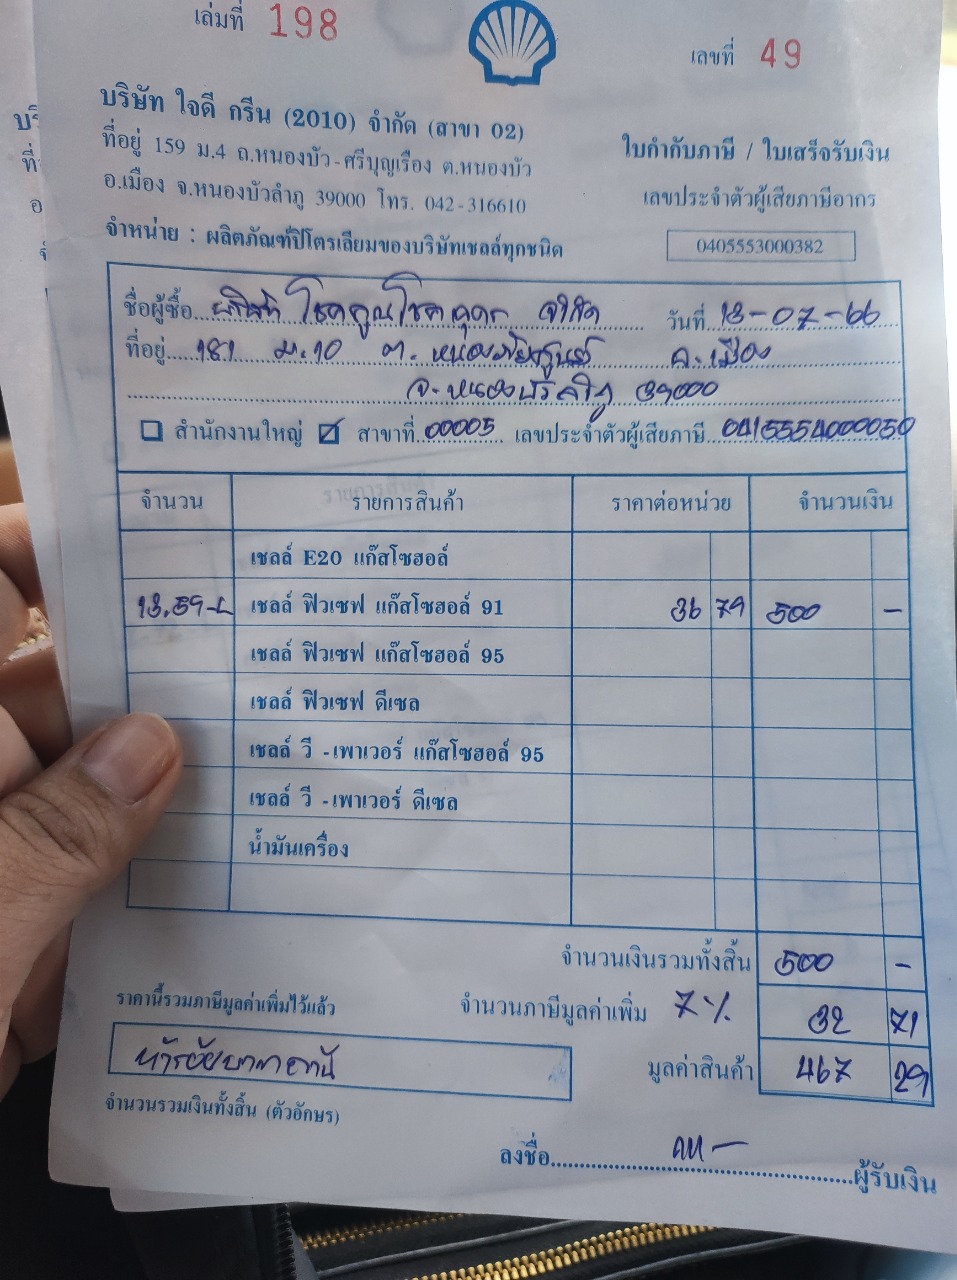 เล่มที่ 198
เลขที่ 49
บริษัท ใจดี กรีน (2010) จำกัด (สาขา 02)
ที่อยู่ 159 ม.4 ถ.หนองบัว-ศรีบุญเรือง ต.หนองบัว
อ.เมือง จ.หนองบัวลำภู 39000 โทร. 042-316610
จำหน่าย : ผลิตภัณฑ์ปิโตรเลียมของบริษัทเชลล์ทุกชนิด
ใบกำกับภาษี / ใบเสร็จรับเงิน
เลขประจำตัวผู้เสียภาษีอากร
0405553000382
ชื่อผู้ซื้อ บริษัท โชคคูณโชคอุดร จำกัด วันที่ 13-07-66
ที่อยู่ 181 ม.10 ต. อ.เมือง
จ.หนองบัวลำภู 39000
สำนักงานใหญ่ สาขาที่ 00005 เลขประจำตัวผู้เสียภาษี 0415554000050
จำนวน รายการสินค้า ราคาต่อหน่วย จำนวนเงิน
เชลล์ E20 แก๊สโซฮอล์
13.59 L เชลล์ ฟิวเซฟ แก๊สโซฮอล์ 91 36 79 500 -
เชลล์ ฟิวเซฟ แก๊สโซฮอล์ 95
เชลล์ ฟิวเซฟ ดีเซล
เชลล์ วี -เพาเวอร์ แก๊สโซฮอล์ 95
เชลล์ วี -เพาเวอร์ ดีเซล
น้ำมันเครื่อง
จำนวนเงินรวมทั้งสิ้น 500 -
ราคานี้รวมภาษีมูลค่าเพิ่มไว้แล้ว จำนวนภาษีมูลค่าเพิ่ม 7% 32 71
ห้าร้อยบาทถ้วน มูลค่าสินค้า 467 29
จำนวนรวมเงินทั้งสิ้น (ตัวอักษร)
ลงชื่อ ผู้รับเงิน